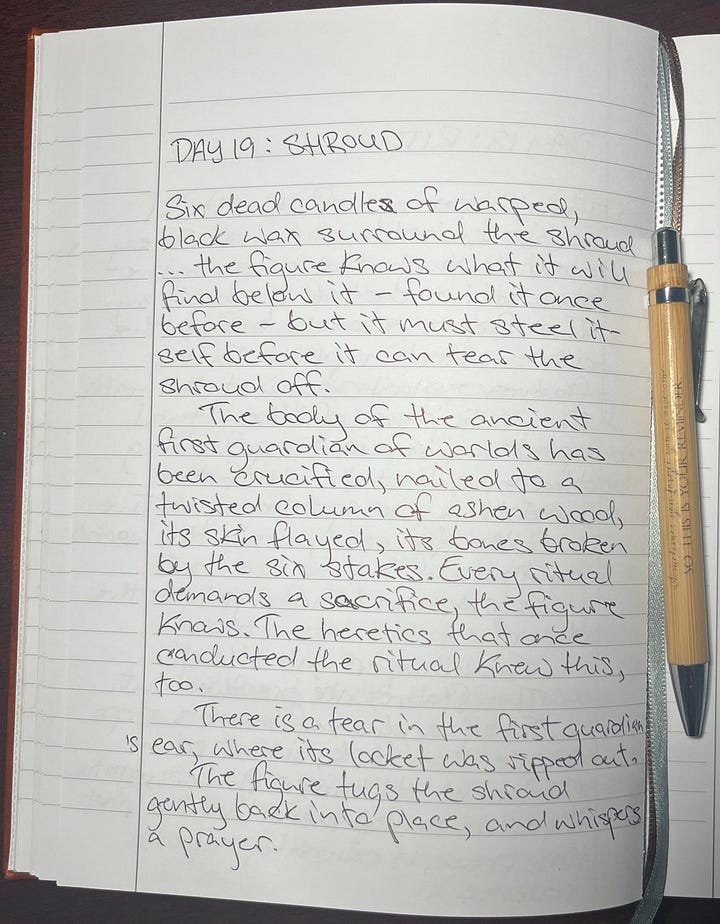 DAY 19: SHROUD
Six dead candles of warped,
black wax surround the shroud
... the figure knows what it will
find below it - found it once
before - but it must steel it-
self before it can tear the
shroud off.
The body of the ancient
first guardian of worlds has
been crucified, nailed to a
twisted column of ashen wood,
its skin flayed, its bones broken
by the six stakes. Every ritual
demands a sacrifice, the figure
knows. The heretics that once
conducted the ritual knew this,
too.
There is a tear in the first guardian
's ear, where its locket was ripped out.
The figure tugs the shroud
gently back into place, and whispers
a prayer.
SO THIS IS YOUR REMINDER